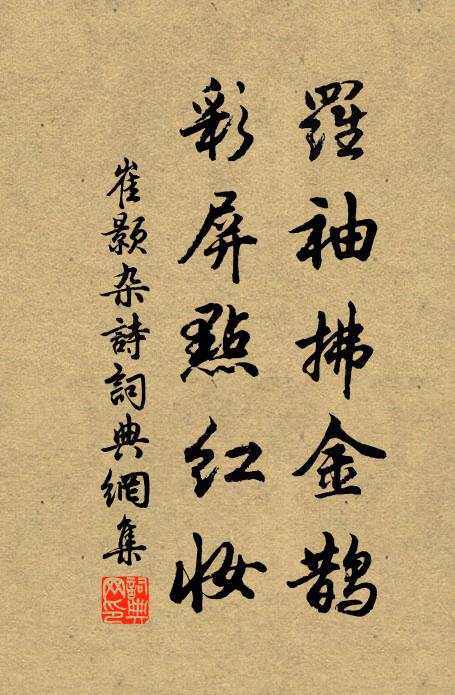 羅袖拂金鵲
彩屏點紅妝
崔顥杂詩詞典網集
詞典網印